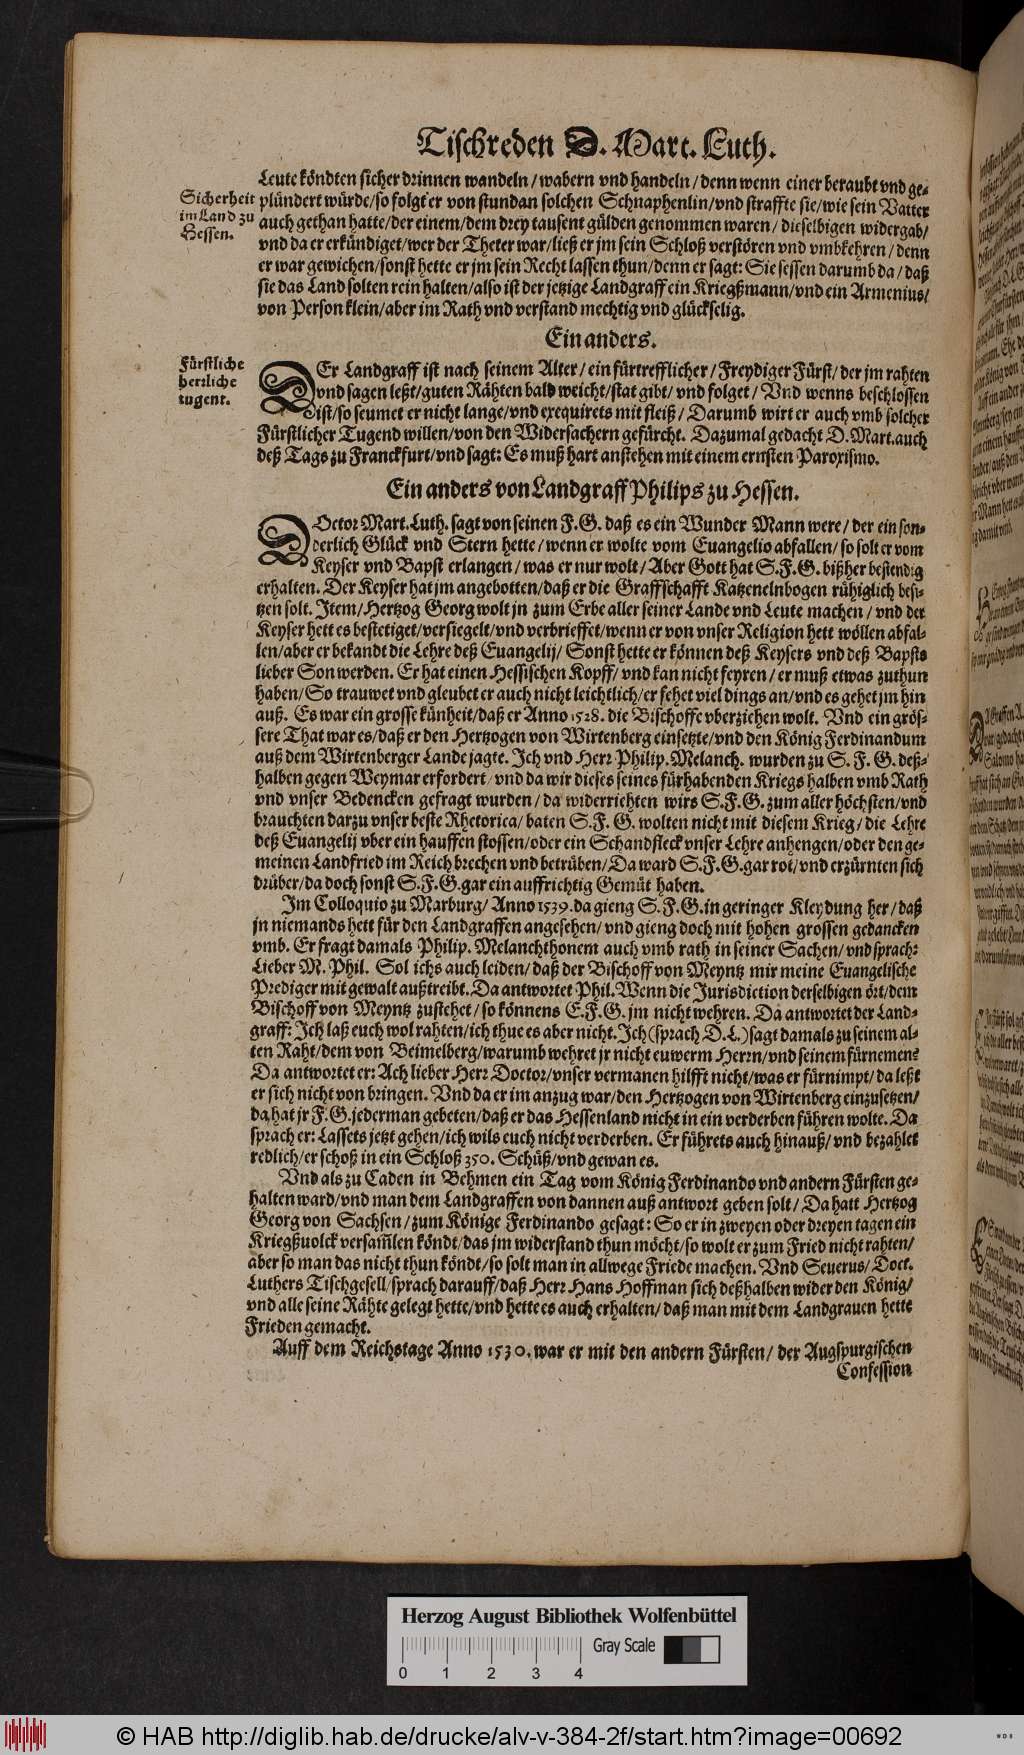 Tischreden D. Mart. Luth.
Leute köndten sicher drinnen wandeln / wabern vnd handeln / denn wenn einer beraubt vnd ge-
Sicherheit
im Land zu
Hessen.
plündert würde / so folgt er von stundan solchen Schnaphenlin / vnd straffte sie / wie sein Vatter
auch gethan hatte / der einem / dem drey tausent gülden genommen waren / dieselbigen widergab /
vnd da er erkündiget / wer der Theter war / ließ er jm sein Schloß verstören vnd vmbkehren / denn
er war gewichen / sonst hette er jm sein Recht lassen thun / denn er sagt: Sie sessen darumb da / daß
sie das Land solten rein halten / also ist der jetzige Landgraff ein Kriegßmann / vnd ein Armenius /
von Person klein / aber im Rath vnd verstand mechtig vnd glückselig.
Ein anders.
Fürstliche
herrliche
tugent.
DEr Landgraff ist nach seinem Alter / ein fürtrefflicher / Freydiger Fürst / der jm rahten
vnd sagen leßt / guten Rähten bald weicht / stat gibt / vnd folget / Vnd wenns beschlossen
ist / so seumet er nicht lange / vnd exequirets mit fleiß / Darumb wirt er auch vmb solcher
Fürstlicher Tugend willen / von den Widersachern gefürcht. Dazumal gedacht D. Mart. auch
deß Tags zu Franckfurt / vnd sagt: Es muß hart anstehen mit einem ernsten Paroxismo.
Ein anders von Landgraff Philips zu Hessen.
DOctor Mart. Luth. sagt von seinen F. G. daß es ein Wunder Mann were / der ein son-
derlich Glück vnd Stern hette / wenn er wolte vom Euangelio abfallen / so solt er vom
Keyser vnd Bapst erlangen / was er nur wolt / Aber Gott hat S. F. G. bißher bestendig
erhalten. Der Keyser hat jm angebotten / daß er die Graffschafft Katzenelnbogen rühiglich besi-
tzen solt. Item / Hertzog Georg wolt jn zum Erbe aller seiner Lande vnd Leute machen / vnd der
Keyser hett es bestetiget / versiegelt / vnd verbrieffet / wenn er von vnser Religion hett wöllen abfal-
len / aber er bekandt die Lehre deß Euangelij / Sonst hette er können deß Keysers vnd deß Bapsts
lieber Son werden. Er hat einen Hessischen Kopff / vnd kan nicht feyren / er muß etwas zuthun
haben / So trauwet vnd gleubet er auch nicht leichtlich / er sehet viel dings an / vnd es gehet jm hin
auß. Es war ein grosse künheit / daß er Anno 1528. die Bischoffe vberziehen wolt. Vnd ein grös-
sere That war es / daß er den Hertzogen von Wirtenberg einsetzte / vnd den König Ferdinandum
auß dem Wirtenberger Lande jagte. Ich vnd Herr Philip. Melanch. wurden zu S. F. G. deß-
halben gegen Weymar erfordert / vnd da wir dieses seines fürhabenden Kriegs halben vmb Rath
vnd vnser Bedencken gefragt wurden / da widerriehten wirs S. F. G. zum aller höchsten / vnd
brauchten darzu vnser beste Rhetorica / baten S. F. G. wolten nicht mit diesem Krieg / die Lehre
deß Euangelij vber ein hauffen stossen / oder ein Schandfleck vnser Lehre anhengen / oder den ge-
meinen Landfried im Reich brechen vnd betrüben / Da ward S. F. G. gar rot / vnd erzürnten sich
drüber / da doch sonst S. F. G. gar ein auffrichtig Gemüt haben.
Im Colloquio zu Marburg / Anno 1539. da gieng S. F. G. in geringer Kleydung her / daß
jn niemands hett für den Landgraffen angesehen / vnd gieng doch mit hohen grossen gedancken
vmb. Er fragt damals Philip. Melanchthonem auch vmb rath in seiner Sachen / vnd sprach:
Lieber M. Phil. Sol ichs auch leiden / daß der Bischoff von Meyntz mir meine Euangelische
Prediger mit gewalt außtreibt. Da antwortet Phil. Wenn die Jurisdiction derselbigen ört / dem
Bischoff von Meyntz zustehet / so könnens E. F. G. jm nicht wehren. Da antwortet der Land-
graff: Ich laß euch wol rahten / ich thue es aber nicht. Ich (sprach D. L.) sagt damals zu seinem al-
ten Raht / dem von Beimelberg / warumb wehret jr nicht euwerm Herrn / vnd seinem fürnemen?
Da antwortet er: Ach lieber Herr Doctor / vnser vermanen hilfft nicht / was er fürnimpt / da leßt
er sich nicht von bringen. Vnd da er im anzug war / den Hertzogen von Wirtenberg einzusetzen /
da hat jr F. G. jederman gebeten / daß er das Hessenland nicht in ein verderben führen wolte. Da
sprach er: Lassets jetzt gehen / ich wils euch nicht verderben. Er führets auch hinauß / vnd bezahlet
redlich / er schoß in ein Schloß 350. Schüß / vnd gewan es.
Vnd als zu Caden in Behmen ein Tag vom König Ferdinando vnd andern Fürsten ge-
halten ward / vnd man dem Landgraffen von dannen auß antwort geben solt / Da hatt Hertzog
Georg von Sachsen / zum Könige Ferdinando gesagt: So er in zweyen oder dreyen tagen ein
Kriegßuolck versam̃len köndt / das jm widerstand thun möcht / so wolt er zum Fried nicht rahten /
aber so man das nicht thun köndt / so solt man in allwege Friede machen. Vnd Seuerus / Doct.
Luthers Tischgesell / sprach darauff / daß Herr Hans Hoffman sich deßhalben wider den König /
vnd alle seine Rähte gelegt hette / vnd hette es auch erhalten / daß man mit dem Landgrauen hette
Frieden gemacht.
Auff dem Reichstage Anno 1530. war er mit den andern Fürsten / der Augspurgischen
Confession
Herzog August Bibliothek Wolfenbüttel
Gray Scale
0 1 2 3 4
© HAB http://diglib.hab.de/drucke/alv-v-384-2f/start.htm?image=00692